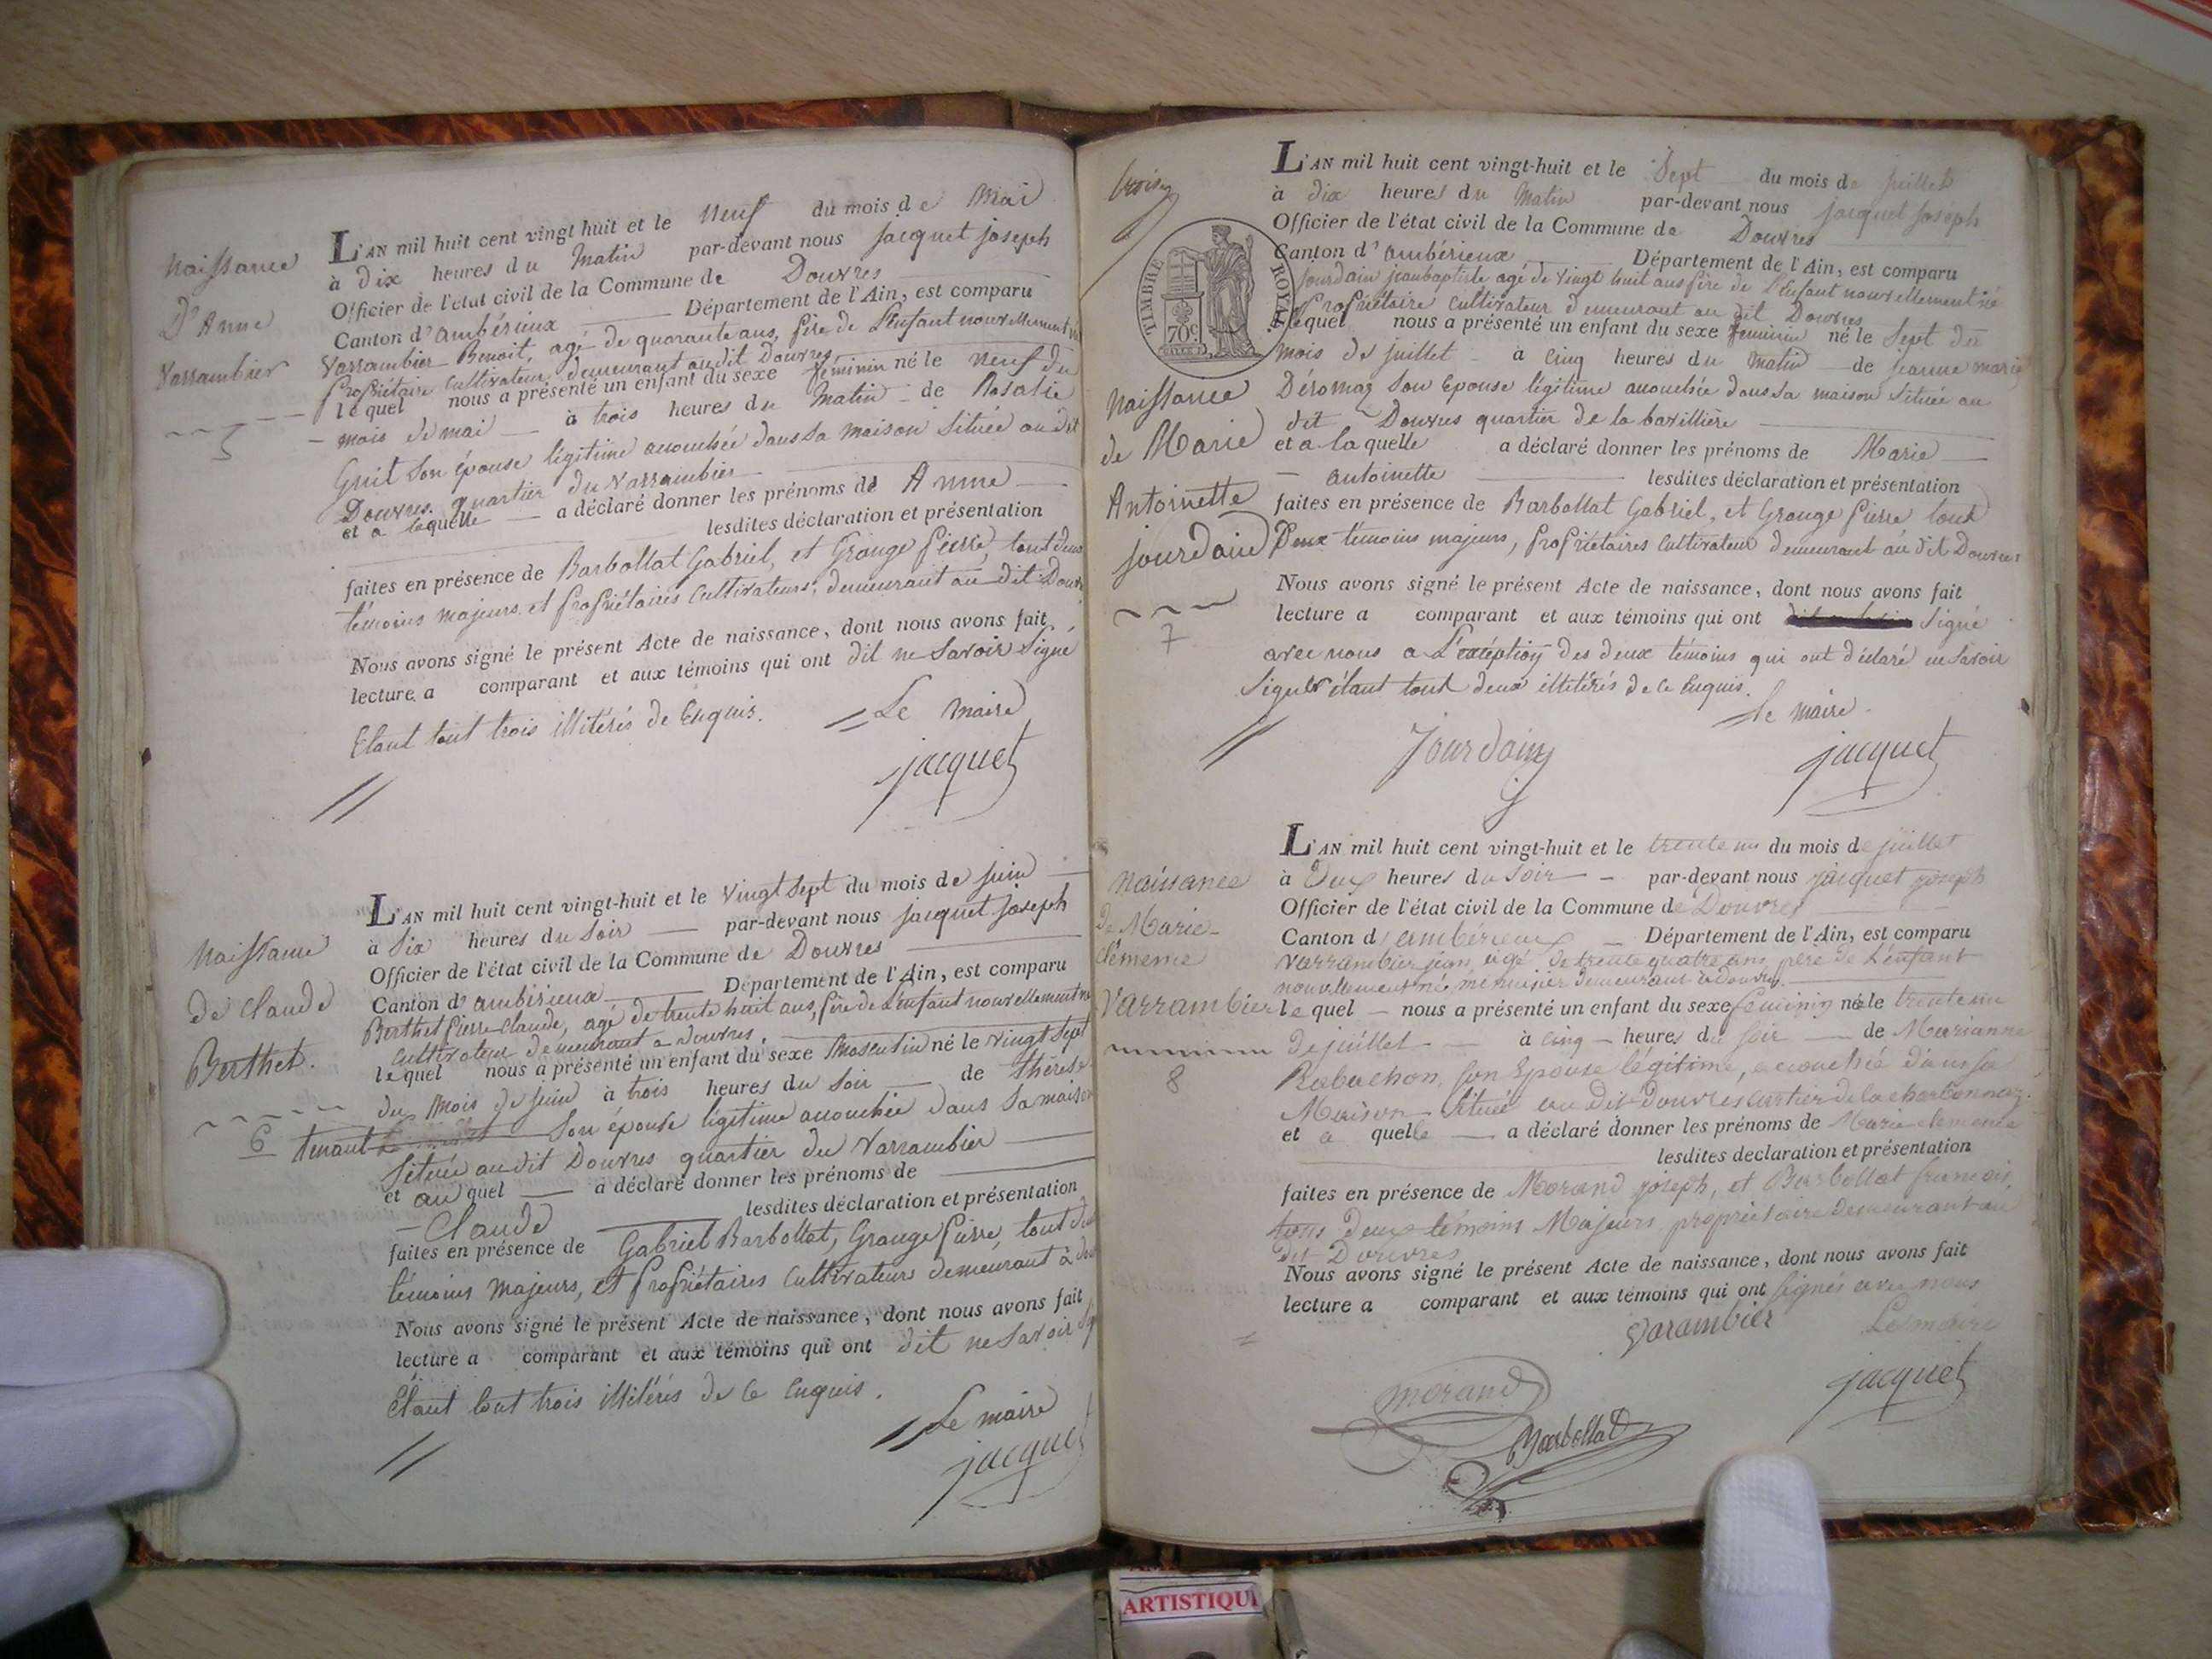 Naissance
D'Anne
Varrambier
5
L'AN mil huit cent vingt huit et le Neuf du mois de Mai
à dix heures du Matin par-devant nous Jacquet joseph
Officier de l'état civil de la Commune de Douvres
Canton d'ambérieux Département de l'Ain, est comparu
Varrambier Benoit, agé de quarante ans, père de L'enfant nouvellement né
Propriétaire Cultivateur demeurant au dit Douvres
lequel nous a présenté un enfant du sexe féminin né le neuf du
mois de mai à trois heures du Matin de Rosalie
Guit Son épouse légitime accouchée dans sa maison Située au dit
Douvres quartier du Varrambier
et a laquelle a déclaré donner les prénoms de Anne
lesdites déclaration et présentation
faites en présence de Barbollat Gabriel, et Grange pierre, tout deux
témoins majeurs et propriétaires Cultivateurs, demeurant au dit Douvres
Nous avons signé le présent Acte de naissance, dont nous avons fait
lecture a comparant et aux témoins qui ont dit ne Savoir Signé
Etant tout trois illitérés de Enquis. Le maire
jacquet
Naissance
de Claude
Berthet.
6
L'AN mil huit cent vingt-huit et le Vingt Sept du mois de juin
à Six heures du Soir par-devant nous jacquet joseph
Officier de l'état civil de la Commune de Douvres
Canton d'ambérieux Département de l'Ain, est comparu
Berthet Pierre Claude, agé de trente huit ans, père de L'enfant nouvellement né
Cultivateur demeurant a Douvres.
lequel nous a présenté un enfant du sexe Masculin né le vingt Sept
du mois de juin à trois heures du Soir de thérèse
tenant Son épouse légitime accouchée dans Sa maison
Située au dit Douvres quartier du Varrambier
et au quel a déclaré donner les prénoms de
Claude lesdites déclaration et présentation
faites en présence de Gabriel Barbollat, Grange Pierre, tout deux
témoins majeurs, et propriétaires Cultivateurs demeurant à
Nous avons signé le présent Acte de naissance, dont nous avons fait
lecture a comparant et aux témoins qui ont dit ne Savoir
Etant tout trois illitérés de ce Enquis.
Le maire
jacquet
trois
TIMBRE ROYAL
70c
Naissance
de Marie
Antoinette
jourdain
7
L'AN mil huit cent vingt-huit et le Sept du mois de juillet
à dix heures du Matin par-devant nous jacquet joseph
Officier de l'état civil de la Commune de Douvres
Canton d'ambérieux Département de l'Ain, est comparu
Jourdain jean baptiste agé de Vingt huit ans père de L'Enfant nouvellement né
Propriétaire Cultivateur demeurant au dit Douvres
lequel nous a présenté un enfant du sexe feminin né le Sept du
mois de juillet à cinq heures du Matin de jeanne marie
Déromaz Son Epouse légitime accouchée dans Sa maison Située au
dit Douvres quartier de la bavillière
et a la quelle a déclaré donner les prénoms de Marie
antoinette lesdites déclaration et présentation
faites en présence de Barbollat Gabriel, et Grange Pierre tout
Deux témoins majeurs, propriétaires Cultivateurs demeurant au dit Douvres
Nous avons signé le présent Acte de naissance, dont nous avons fait
lecture a comparant et aux témoins qui ont Signé
avec nous a L'exception des deux témoins qui ont déclaré ne Savoir
Signer étant tout deux illitérés de ce Enquis.
Le maire
Jourdain
jacquet
Naissance
de Marie
clémence
Varrambier
8
L'AN mil huit cent vingt-huit et le trente un du mois de juillet
à Dix heures du Soir par-devant nous jacquet joseph
Officier de l'état civil de la Commune de Douvres
Canton d'ambérieux Département de l'Ain, est comparu
varrambier jean agé de trente quatre ans, père de L'enfant
nouvellement né, menuisier demeurant à douvres
lequel nous a présenté un enfant du sexe feminin né le trente un
de juillet à cinq heures du Soir de Marianne
Rabuchon, Son Epouse légitime, accouchée dans sa
Maison Située au dit douvres cartier de la charbonnaz
et a quelle a déclaré donner les prénoms de Marie clemence
lesdites declaration et présentation
faites en présence de Morand joseph, et Barbollat francois,
tous deux témoins Majeurs propriétaire demeurant au
dit Douvres
Nous avons signé le présent Acte de naissance, dont nous avons fait
lecture a comparant et aux témoins qui ont Signés avec nous
Varambier Le maire
jacquet
morand
Barbollat
ARTISTIQU